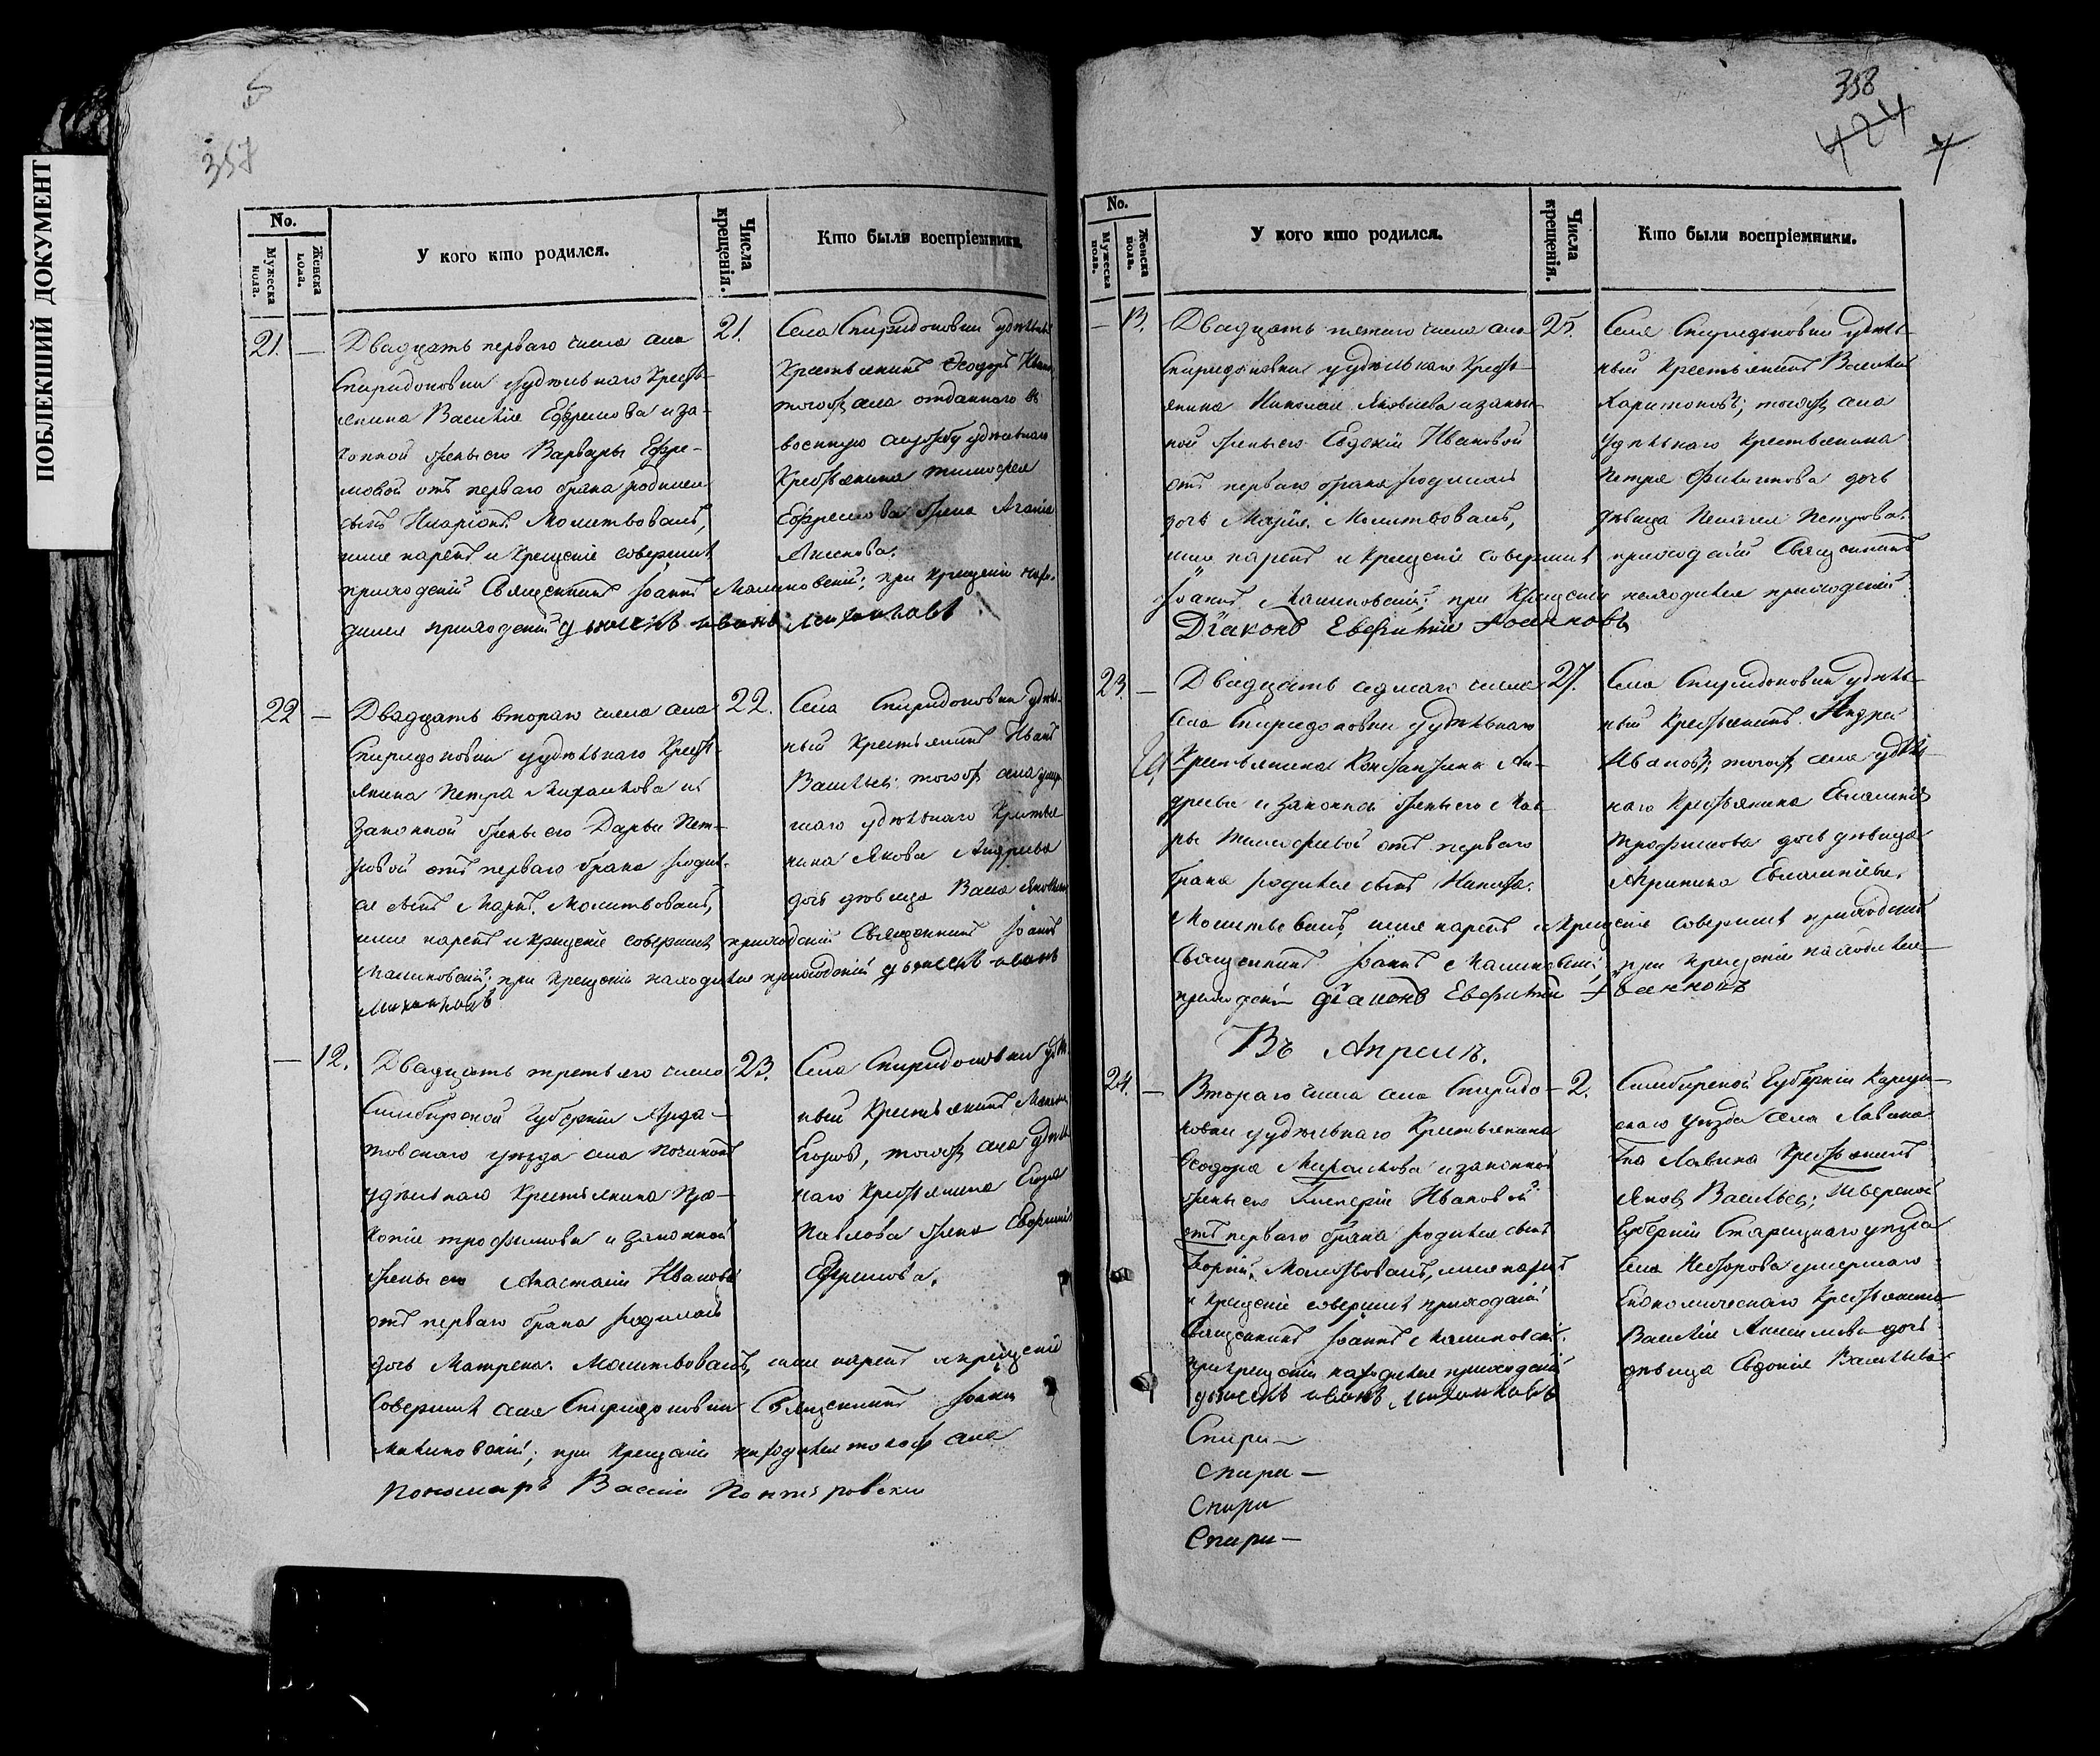 ПОБЛЕКШИЙ ДОКУМЕНТ
357
No.
Мужеска пола.
Женска пола.
У кого кто родился.
Числа крещенія.
Кто были воспріемники.
21. —
Двадцать перваго числа села
Спиридоновки удѣльнаго Кресть-
янина Василія Ефремова и за-
конной жены его Варвары Ефре-
мовой отъ перваго брака родился
сынъ Иларіонъ. Молитвовалъ,
имя нарекъ и крещеніе совершилъ
приходскій Священникъ Іоаннъ Малиновскій; при крещеніи нахо-
дился приходскій дьячекъ иванъ
21.
Села Спиридоновки удѣльный
Крестьянинъ Ѳеодоръ
тогожъ села отданнаго въ
военную службу удѣльнаго
Крестьянина Тимофея
Ефремова жена Агафія
22 —
Двадцать втораго числа села
Спиридоновки удѣльнаго Кресть-
янина Петра Михайлова и
законной жены его Дарьи Пет-
ровой отъ перваго брака родил-
ся сынъ Маркъ. Молитвовалъ,
имя нарекъ и крещеніе совершилъ приходскій Священникъ Іоаннъ
Малиновскій; при крещеніи находился приходскій дьячекъ иванъ
22.
Села Спиридоновки удѣль-
ный Крестьянинъ Иванъ
Васильевъ; тогожъ села умер-
шаго удѣльнаго Крестья-
нина Якова Андреева
дочь дѣвица Васса
— 12.
Двадцать третьяго числа
Симбирской Губерніи Арда-
товскаго уѣзда села Починокъ
удѣльнаго Крестьянина Про-
копія Трофимова и законной
жены его Анастасіи Ивановой
отъ перваго брака родилась
дочь Матрена. Молитвовалъ, имя нарекъ и крещеніе
совершилъ села Спиридоновки Священникъ Іоаннъ
Малиновскій; при крещеніи находился тогожъ села
пономарь Василій
23.
Села Спиридоновки
ный Крестьянинъ
Егоровъ, тогожъ села удѣль-
наго Крестьянина Егора
Павлова жена
Ефремова.
358
424
No.
Мужеска пола.
Женска пола.
У кого кто родился.
Числа крещенія.
Кто были воспріемники.
— 13.
Двадцать пятаго числа села
Спиридоновки удѣльнаго Кресть-
янина Николая Яковлева и закон-
ной жены его Евдокіи Ивановой
отъ перваго брака родилась
дочь Марія. Молитвовалъ,
имя нарекъ и крещеніе совершилъ приходскій Священникъ
Іоаннъ Малиновскій; при Крещеніи находился приходскій
Дїаконъ Евфимій
25.
Села Спиридоновки удѣль-
ный Крестьянинъ Василій
Харитоновъ; тогожъ села
удѣльнаго Крестьянина
Петра Филиппова дочь
дѣвица Пелагея Петрова.
23. —
Двадцать седмаго числа
Села Спиридоновки удѣльнаго
Крестьянина Константина Ан-
дреева и законной жены его Мав-
ры Тимофеевой отъ перваго
брака родился сынъ Никита.
Молитвовалъ, имя нарекъ и Крещеніе совершилъ приходскій
Священникъ Іоаннъ Малиновскій; при Крещеніи находился
приходскій дїаконъ Евфимій
27.
Села Спиридоновки удѣль-
ный Крестьянинъ Андрей
Ивановъ, тогожъ села удѣль-
наго Крестьянина Евлампія
Трофимова дочь дѣвица
Агрипина Евлампіева.
Въ Апрелѣ.
24. —
Втораго числа села Спиридо-
новки удѣльнаго Крестьянина
Ѳеодора Михайлова и законной
жены его Гликеріи Ивановой
отъ перваго брака родился сынъ
Георгій. Молитвовалъ, имя нарекъ
и крещеніе совершилъ приходскій
Священникъ Іоаннъ Малиновскій.
при крещеніи находился приходскій
дьячекъ иванъ
Спири—
Спири—
Спири
Спири—
2.
Симбирской Губерніи Корсун-
скаго уѣзда села
Крестьянинъ
Яковъ Васильевъ; Тверской
Губерніи Старицкаго уѣзда
села умершаго
Економическаго Крестьянина
Василія дочь
дѣвица Евдокія Васильева